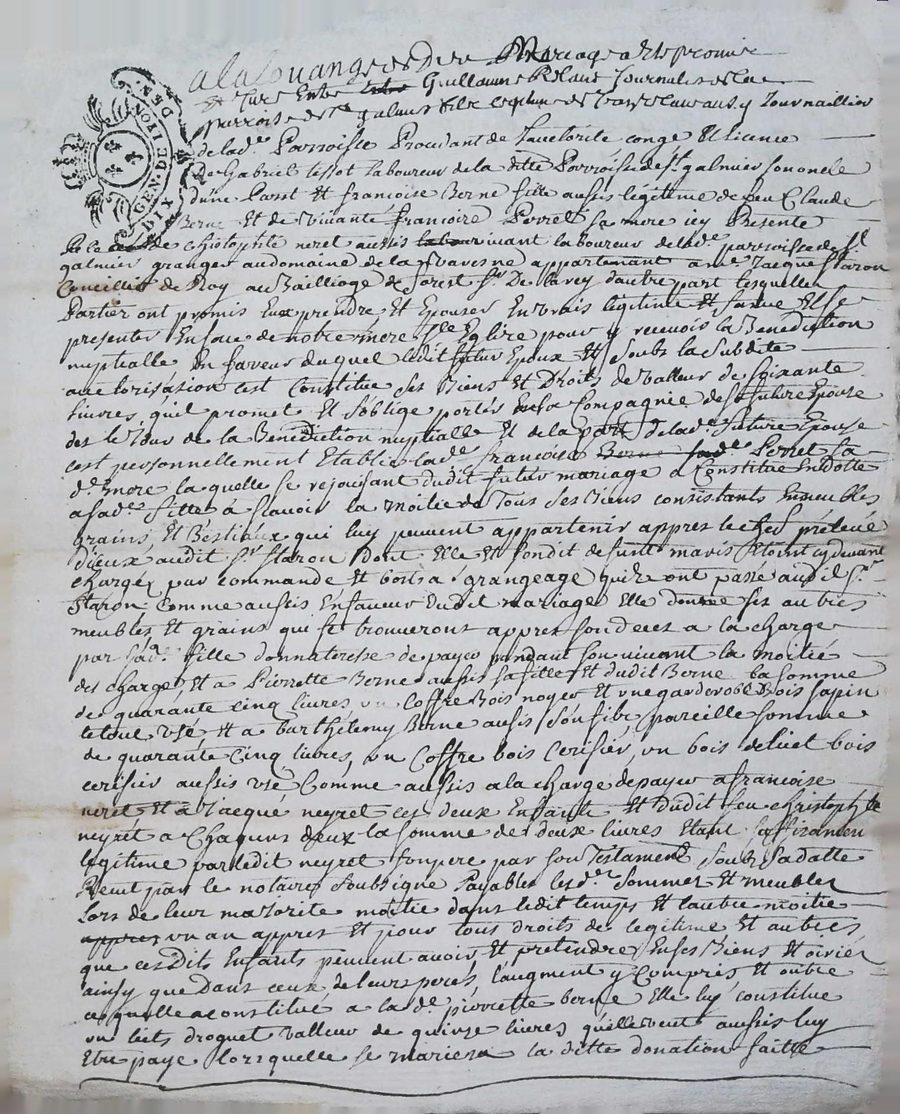 GEN. DE LYON
DIX DEN.
a la Louange de dieu Mariage a Esté promis
Entre Guillaume Journalier de la
parroisse de St galmier fils legitime de Journaillier
de lad.e Parroisse Procedant de Lauctorité congé Et licence
De Gabriel tissot laboureur de la ditte Parroisse de st galmier son oncle
dune Part Et francoise Berne fille aussis légitime de feu Claude
Berne Et de vivante francoise Perret sa mere icy Presente
de christophle neret aussis vivant laboureur de lad.e parroisse de st
galmier granger audomaine de la appartenant a mr Jacque Staron
Conceillier du Roy au Bailliage de forest sr De Larey dautre part lesquelles
Parties ont promis Eux prendre Et Epouser En vrais legitime Et futur Et se
presenter En face de notre mere ste Eglize pour y recevoir la Benediction
nuptialle En faveur duquel ledit futur Epoux Et soubs la subdite
authorisation cest Constitué ses Biens Et Droits de valleur de soixante
livres quil promet Et sôblige portér En la Compagnée de sa future Epouse
des le Jour de la Benediction nuptialle Et de la part delad.e future Epouse
cest personnellement Etablie lad.e francoise Perret sa
d.e mere la quelle se rejouisant dudit futur mariage a Constitué En dotte
a sad.e fille á scavoir la moitié de tous ses Biens consistants En meubles
grains Et Bestiaux qui luy peuvent appartenir appres le chef prélevé
audit sr Staron dont Elle Et son dit defunt mary Etoint cy devant
chargéz par commande Et grangeage quils ont passé audit sr
Staron Comme aussis En faveur dudit mariage Elle donne ses autres
meubles Et grains qui se trouveront appres son deces a la charge
par sad.e fille donnateresse de payer pendant son vivant la moitié
des charges Et a Pierrette Berne aussis sa fille Et dudit Berne la somme
de quarante cinq livres un Coffre Bois noyer Et une garderobe Bois sapin
le tout usé Et a Barthelemy Berne aussis son fils pareille somme
de quarante cinq livres, un Coffre bois cerisier, un bois de liet bois
cerisier aussis usé Comme aussis a la charge de payer a francoise
neret Et à Jacque neyret ces deux Enfants Et dudit feu christophle
neyret a chaquns deux la somme de deux livres Etant
legitime par ledit neyret son pere par son Testament soubs sa datte
Receu par le notaire soubsigné Payables lesd.es sommes Et meubles
lors de leur majorité moitié dans ledit temps Et lautre moitié
un an appres Et pour tous droits de legitime Et autres
que ces dits Enfants peuvent avoir Et pretendre En ses Biens Et
ainsy que dans ceux de leurs perés, laugment y Compris Et outre
ce quelle a constitué a lad.e pierrette berne Elle luy constitue
un liets droguet valleur de quinse livres quélle veut aussis luy
Etre payé lorsquelle se mariera la ditte donation faitte